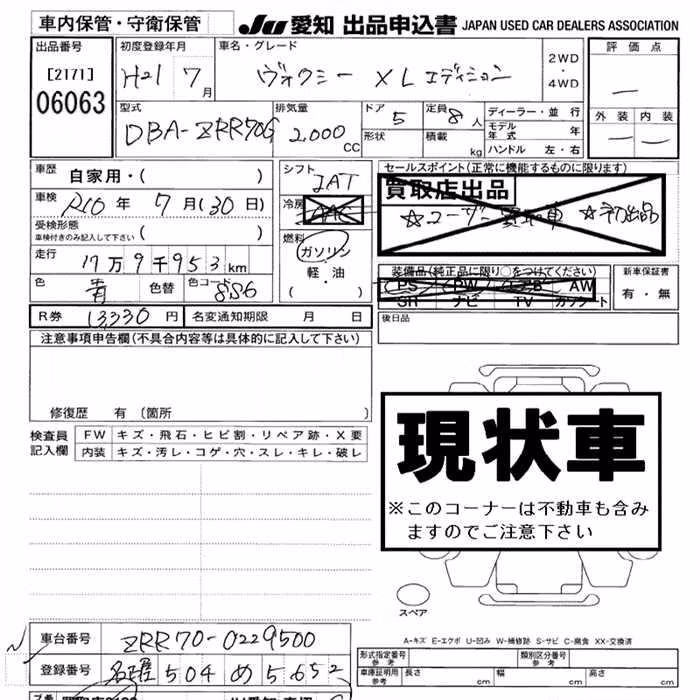 車内保管・守衛保管 JU 愛知 出品申込書 JAPAN USED CAR DEALERS ASSOCIATION
出品番号 初度登録年月 車名・グレード 2WD・4WD 評価点
[2171] 06063 H21 7月 ヴォクシー XLエディション —
型式 排気量 ドア 5 定員 8人 ディーラー・並行 外装 内装
DBA-ZRR70G 2,000 CC 形状 積載 kg モデル年式 年 — —
ハンドル 左・右
車歴 自家用・( ) シフト IAT セールスポイント(正常に機能するものに限ります)
車検 R10年 7月(30日) 冷房 AAC 買取店出品
受検形態 車検付きのみ記入して下さい ( ) ☆ユーザー買取車 ☆初出品
燃料 ガソリン・軽油 ( )
走行 17万9千953km
装備品(純正品に限り○をつけてください) 新車保証書
色 青 色替 色コード 8S6 PS PW エアB AW 有・無
SR ナビ TV カワシート
R券 13,330円 名変通知期限 月 日 後日品
注意事項申告欄(不具合内容等は具体的に記入して下さい)
修復歴 有 (箇所 )
検査員記入欄 FW キズ・飛石・ヒビ割・リペア跡・X要
内装 キズ・汚レ・コゲ・穴・スレ・キレ・破レ
現状車
※このコーナーは不動車も含み
ますのでご注意下さい
スペア
A-キズ E-エクボ U-凹み W-補修跡 S-サビ C-腐食 XX-交換済
車台番号 ZRR70-0229500
形式指定番号 参考 類別区分番号 参考
登録番号 名古屋 504 め 5652
車庫証明用 参考 長さ cm 幅 cm 高さ cm